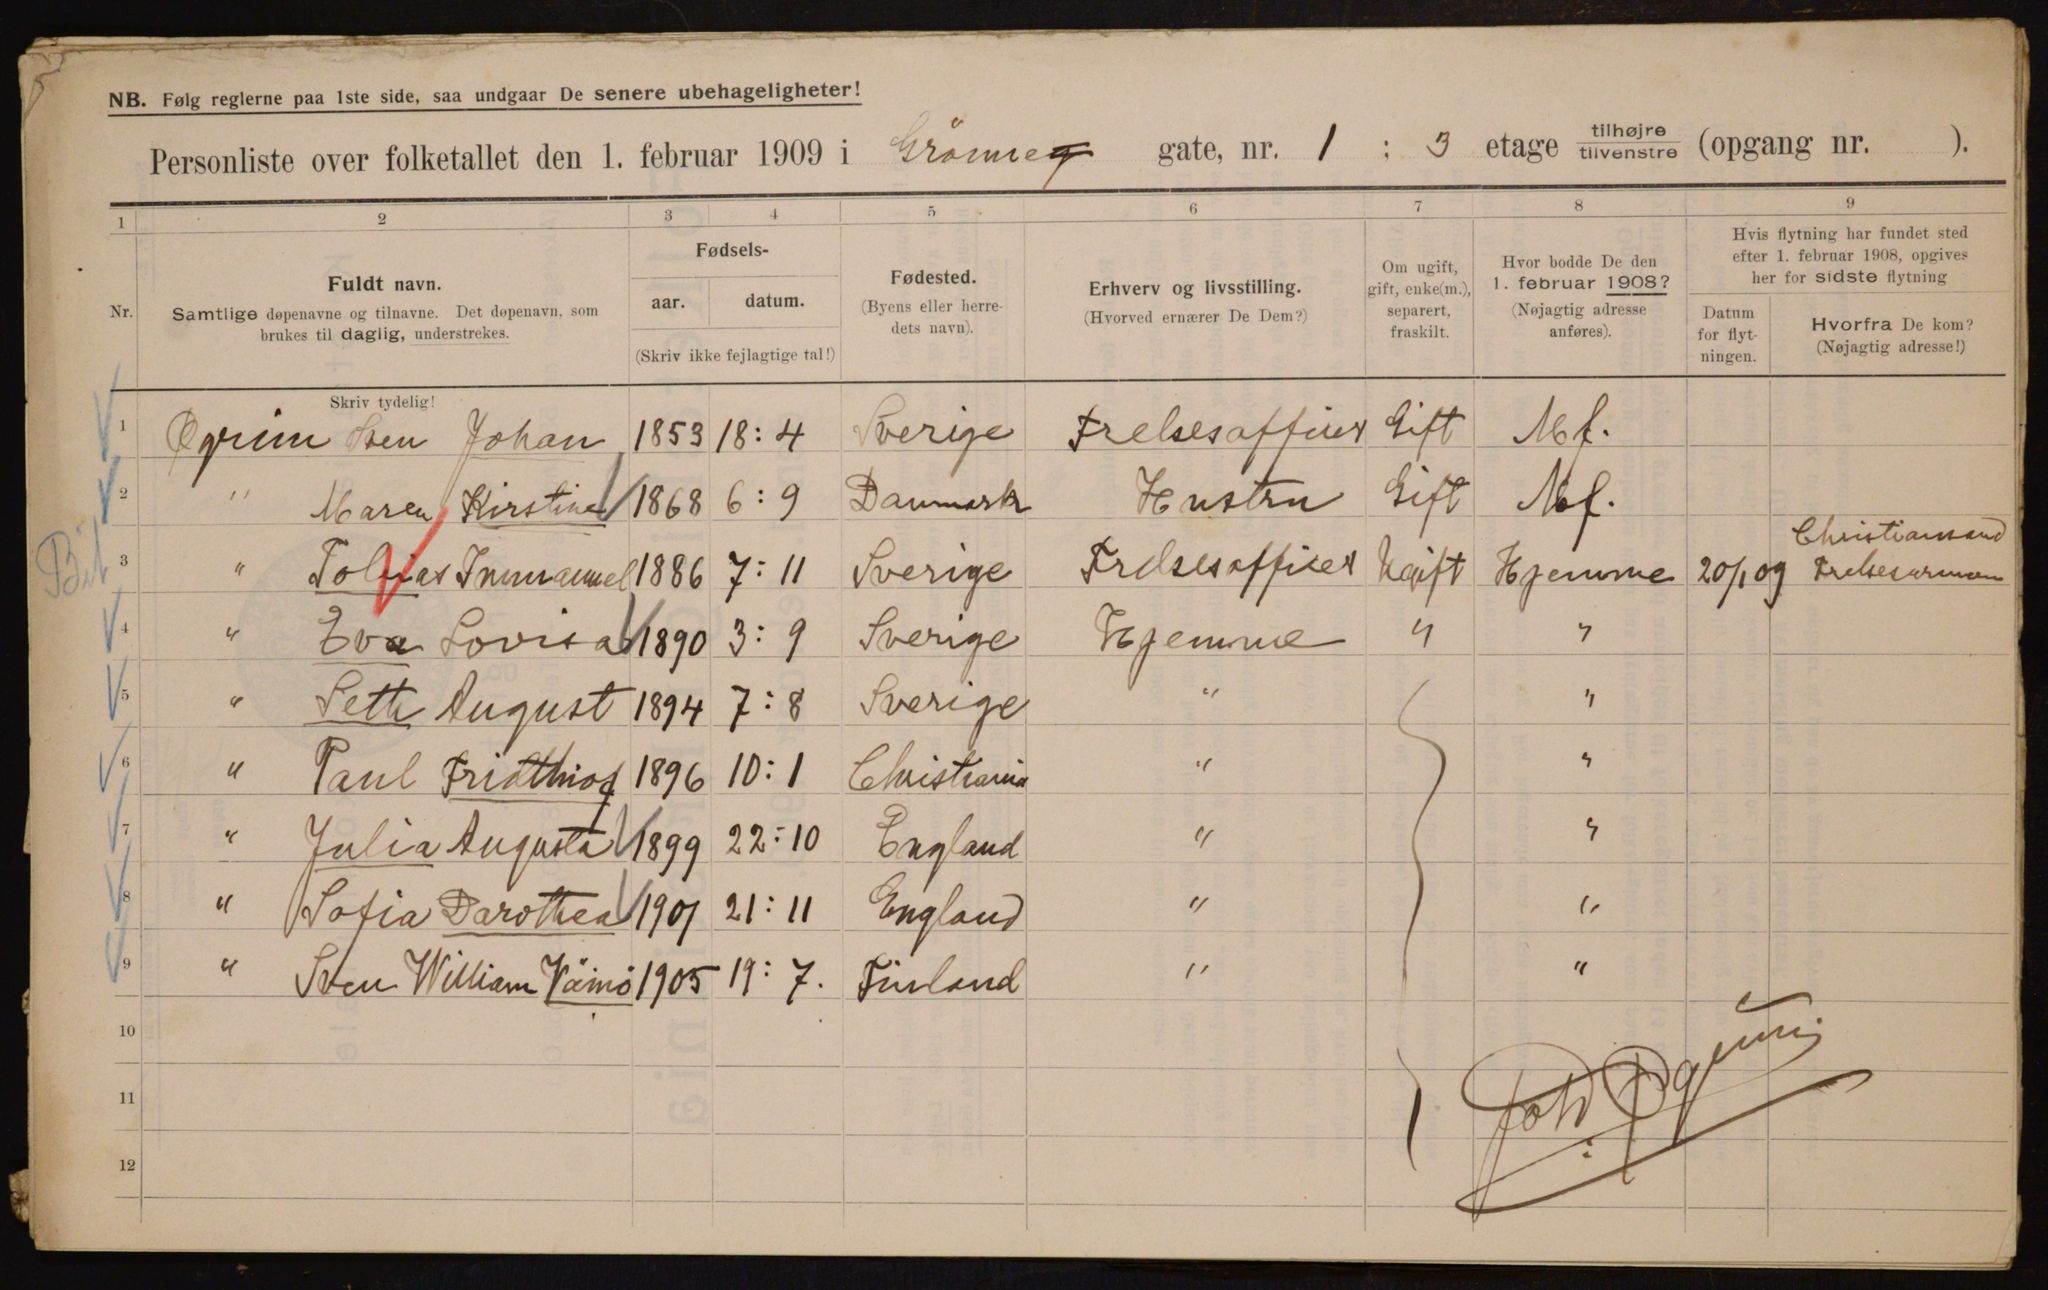 NB. Følg reglerne paa 1ste side, saa undgaar De senere ubehageligheter!
Personliste over folketallet den 1. februar 1909 i Grönneg gate, nr. 1 : 3 etage tilhøjre tilvenstre (opgang nr. ).
1 2 3 4 5 6 7 8 9
Nr.
Fuldt navn.
Samtlige døpenavne og tilnavne. Det døpenavn, som
brukes til daglig, understrekes.
Skriv tydelig!
Fødsels-
aar. datum.
(Skriv ikke fejlagtige tal!)
Fødested.
(Byens eller herre-
dets navn).
Erhverv og livsstilling.
(Hvorved ernærer De Dem?)
Om ugift,
gift, enke(m.),
separert,
fraskilt.
Hvor bodde De den
1. februar 1908?
(Nøjagtig adresse
anføres).
Hvis flytning har fundet sted
efter 1. februar 1908, opgives
her for sidste flytning
Datum
for flyt-
ningen.
Hvorfra De kom?
(Nøjagtig adresse!)
1 Øgrim Sven Johan 1853 18:4 Sverige Frelsesofficer Gift
2 " Maren Kirstine 1868 6:9 Danmark Hustru Gift
Christianssand
Bit 3 " Tobias Immanuel 1886 7:11 Sverige Frelsesofficer Ugift Hjemme 20/1 09 Frelsesarmeen
4 " Eva Lovisa 1890 3:9 Sverige Hjemme " "
5 " Seth August 1894 7:8 Sverige " "
6 " Paul Fridthiof 1896 10:1 Christiania " "
7 " Julia Augusta 1899 22:10 England " "
8 " Sofia Darothea 1901 21:11 England " "
9 " Sven William Väinö 1905 19:7. Finland " "
10
11
12
Joh Øgrim